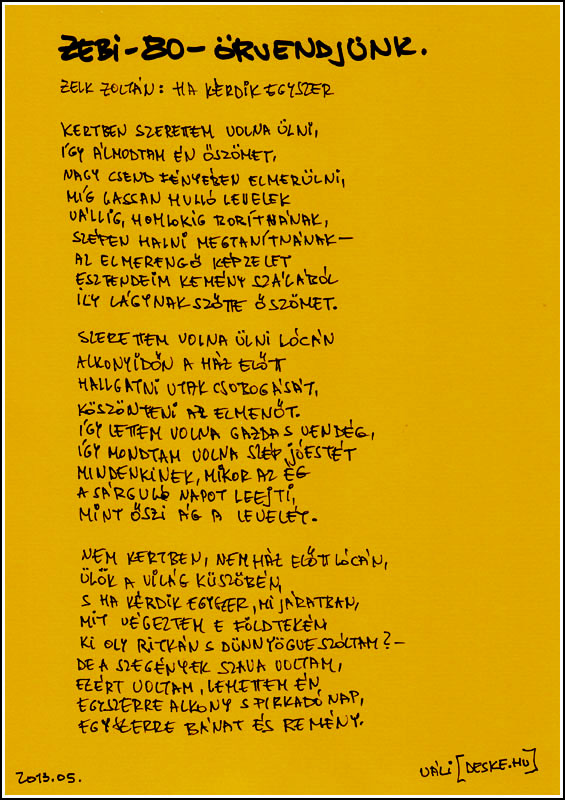 ZEBI-80-ÖRVENDJÜNK.
ZELK ZOLTÁN: HA KÉRDIK EGYSZER
KERTBEN SZERETTEM VOLNA ÜLNI,
ÍGY ÁLMODTAM ÉN ŐSZÖMET,
NAGY CSEND FÉNYÉBEN ELMERÜLNI,
MÍG LASSAN HULLÓ LEVELEK
VÁLLIG, HOMLOKIG BORÍTNÁNAK,
SZÉPEN HALNI MEGTANÍTNÁNAK—
AZ ELMERENGŐ KÉPZELET
ESZTENDEIM KEMÉNY SZÁLÁBÓL
ILY LÁGYNAK SZŐTTE ŐSZÖMET.
SZERETTEM VOLNA ÜLNI LÓCÁN
ALKONYIDŐN A HÁZ ELŐTT
HALLGATNI UTAK CSOBOGÁSÁT,
KÖSZÖNTENI AZ ELMENŐT.
ÍGY LETTEM VOLNA GAZDA S VENDÉG,
ÍGY MONDTAM VOLNA SZÉP JÓESTÉT
MINDENKINEK, MIKOR AZ ÉG
A SÁRGULÓ NAPOT LEEJTI,
MINT ŐSZI ÁG A LEVELÉT.
NEM KERTBEN, NEM HÁZ ELŐTT LÓCÁN,
ÜLÖK A VILÁG KÜSZÖBÉN,
S HA KÉRDIK EGYSZER, MI JÁRATBAN,
MIT VÉGEZTEM E FÖLDTEKÉN
KI OLY RITKÁN S DÜNNYÖGVE SZÓLTAM?—
DE A SZEGÉNYEK SZAVA VOLTAM,
EZÉRT VOLTAM, LEHETTEM ÉN
EGYSZERRE ALKONY S PIRKADÓ NAP,
EGYSZERRE BÁNAT ÉS REMÉNY.
2013.05.
VÁLI [DESKE.HU]